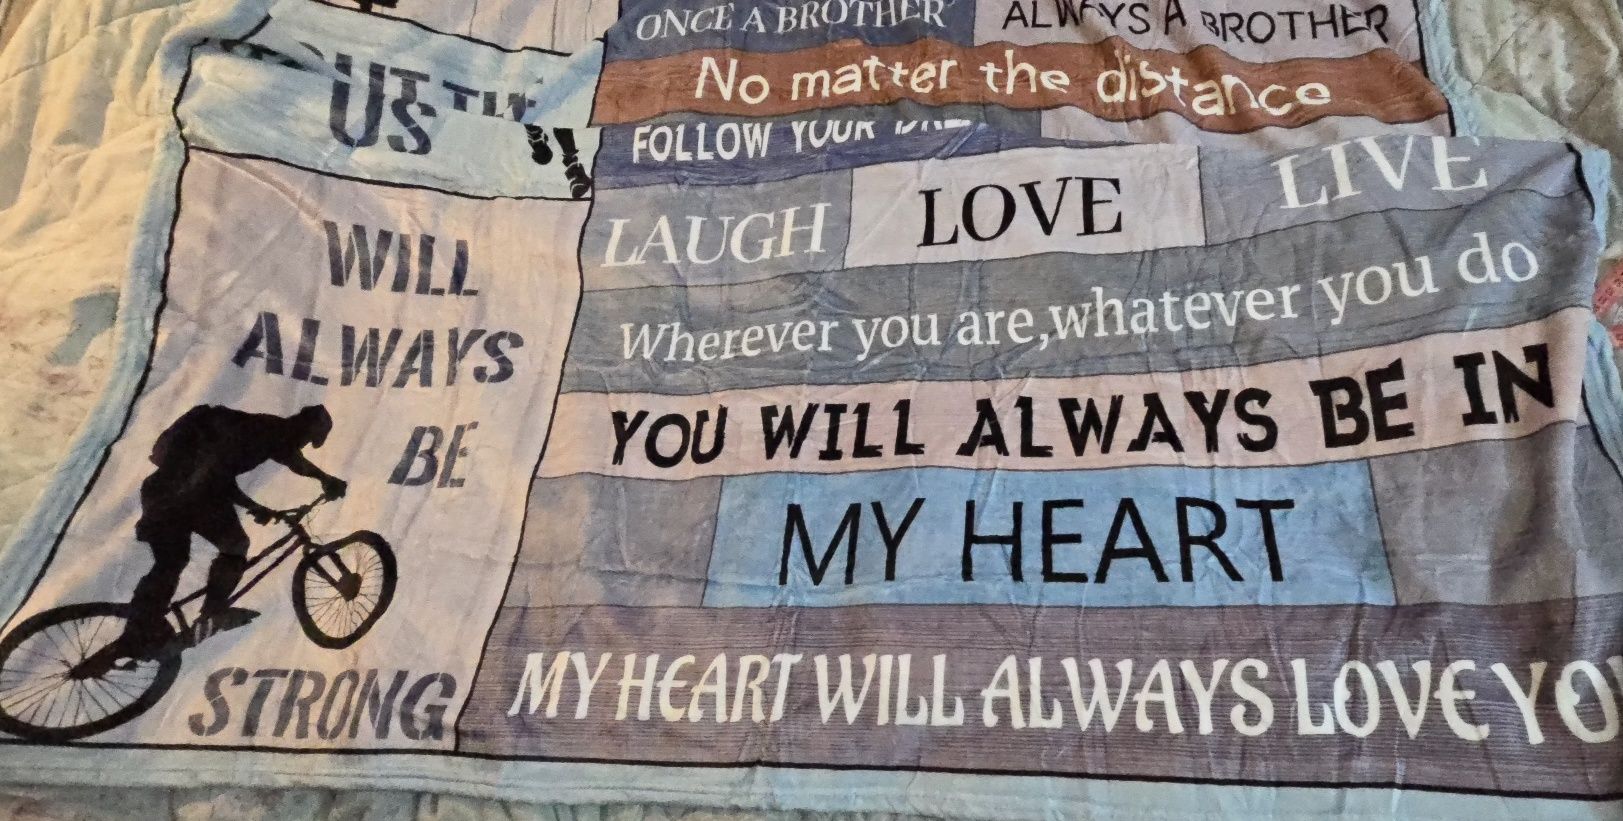 ONCE A BROTHER ALWAYS A BROTHER
No matter the distance
FOLLOW YOUR
LAUGH LOVE LIVE
Wherever you are,whatever you do
YOU WILL ALWAYS BE IN
MY HEART
MY HEART WILL ALWAYS LOVE YO
US
WILL
ALWAYS
BE
STRONG